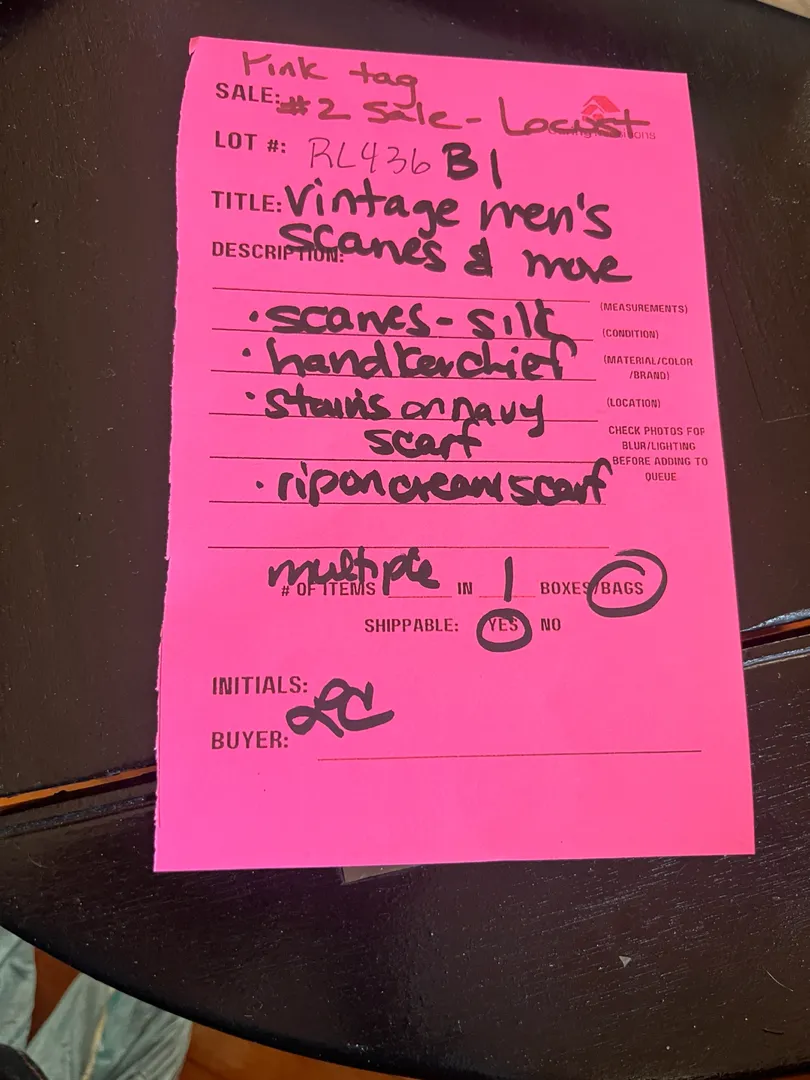 Pink tag
SALE: #2 Sale - Locust
LOT #: RL436 B1
TITLE: Vintage men's
scarves & more
DESCRIPTION:
(MEASUREMENTS)
• scarves - silk
(CONDITION)
• handkerchief
(MATERIAL/COLOR
/BRAND)
• stains on navy
(LOCATION)
scarf
CHECK PHOTOS FOR
BLUR/LIGHTING
BEFORE ADDING TO
QUEUE
• rip on cream scarf
# OF ITEMS multiple IN 1 BOXES/BAGS
SHIPPABLE: YES NO
INITIALS: LC
BUYER: